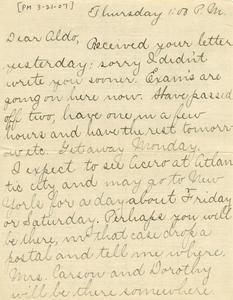 [PM 3-21-07]
Thursday 1:03 P.M.
Dear Aldo,
Received your letter
yesterday; sorry I didn't
write you sooner. Exam's are
going on here now. Have passed
off two, have one in a few
hours and have the rest tomorr-
ow etc. Get away Monday.
I expect to see Acero at Atlan-
tic city and may go to New
York for a day about Friday
or Saturday. Perhaps you will
be there, in that case drop a
postal and tell me where.
Mrs. Carson and Dorothy
will be there somewhere.